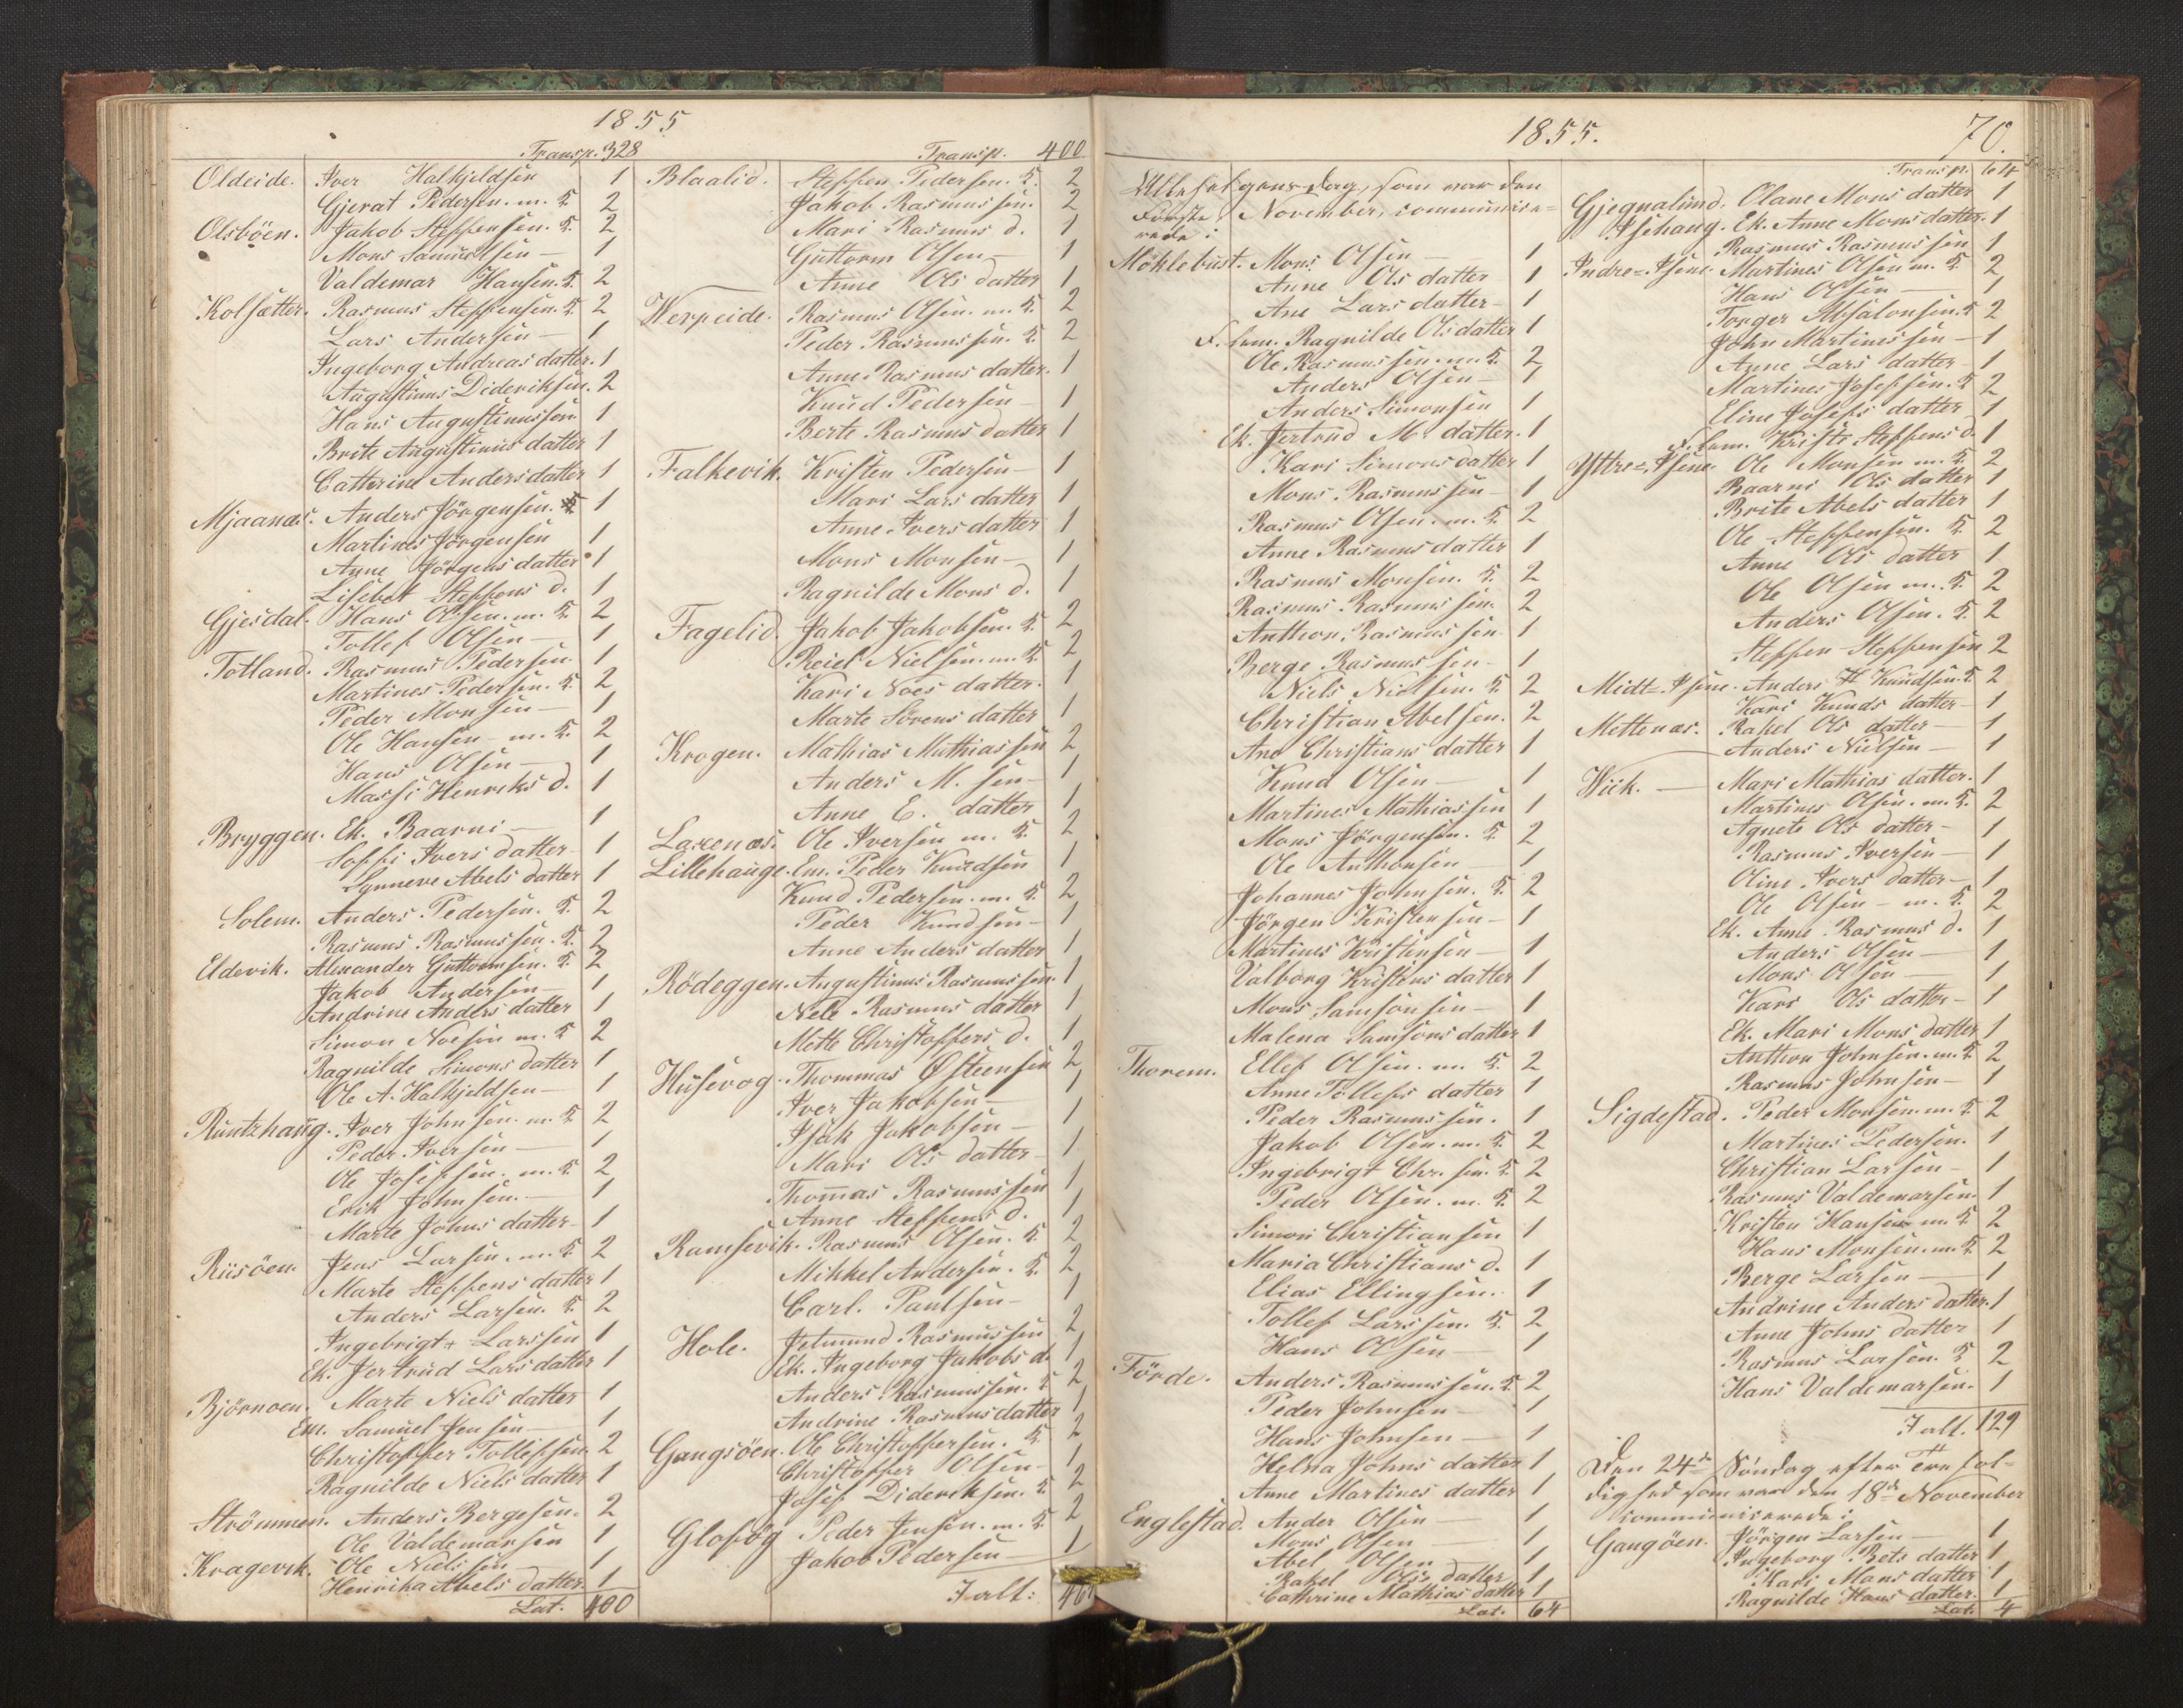 1855
Transp. 328
Oldeide. Iver Halkjeldsen 1
Gjerat Pedersen. m. K. 2
Olsböen. Jakob Steffensen. K. 2
Mons Samuelsen — 1
Valdemar Hansen. K. 2
Kolsætter. Rasmus Steffensen. K. 2
Lars Andersen — 1
Ingeborg Andreas datter. 1
Augustinus Dideriksen. 2
Hans Augustinussøn 1
Brite Augustinus datter 1
Cathrine Anders datter 1
Mjaanæs. Anders Jörgensen. 1
Martines Jörgensen 1
Anne Jörgens datter 1
Lisebet Steffens d. 1
Gjesdal. Hans Olsen. m. K. 2
Tollef Olsen — 1
Totland. Rasmus Pedersen. 1
Martines Pedersen. K. 2
Peder Monsen — 1
Ole Hansen — m. K. 2
Hans Olsen — 1
Massi Henriks d. 1
Bryggen. Ek. Baarni — 1
Soffi Ivers datter — 1
Synneve Abels datter 1
Solem. Anders Pedersen. K. 2
Rasmus Rasmussen. K. 2
Eldevik. Alexander Guttormsen. K. 2
Jakob Andersen — 1
Andrine Anders datter 1
Simon Noesen m. K 2
Ragnilde Simons datter 1
Ole A. Halkjeldsen — 1
Runtzhaug. Iver Johnsen. m. K 2
Peder Iversen — 1
Ole Josefsen. m. K. 2
Erik Johnsen. — 1
Marte Johns datter — 1
Riisöen. Jens Larsen. m. K. 2
Marte Steffens datter 1
Anders Larsen. K. 2
Ingebrigt + Larssen 1
Ek. Jertrud Lars datter 1
Björnoen. Marte Niels datter 1
Em. Samuel Jensen — 1
Christoffer Tollefsen 2
Ragnilde Niels datter 1
Strömmen. Anders Bergesen. 2
Ole Valdemarsen 1
Kragevik. Ole Nielssen — 1
Henrika Abels datter. 1
Lat. 400
Transp. 400
Blaalid. Steffen Pedersen. K. 2
Jakob Rasmussen. 2
Mari Rasmus d. 1
Guttorm Olsen — 1
Anne Ols datter 1
Werpeide. Rasmus Olsen. m. K. 2
Peder Rasmussen. K. 2
Anne Rasmus datter. 1
Knud Pedersen — 1
Berte Rasmus datter 1
Falkevik. Kristen Pedersen — 1
Mari Lars datter 1
Anne Ivers datter 1
Mons Monsen — 1
Ragnilde Mons d. 1
Fagelid. Jakob Jakobsen. K. 2
Reiel Nielsen. m. K. 2
Kari Noes datter. 1
Marte Sörens datter 1
Krogen. Mathias Mathiassen 2
Anders M. sen — 1
Anne E. datter 1
Laxenæs. Ole Iversen m. K. 2
Lillehauge. Em. Peder Knudsen 1
Knud Pedersen. m. K. 2
Peder Knudsen — 1
Anne Anders datter 1
Rödeggen. Augustinus Rasmussen. 1
Nele Rasmus datter 1
Mette Christoffers d. 1
Husevog. Thommas Østeensen 2
Iver Jakobsen — 1
Isak Jakobsen — 1
Mari Ols datter — 1
Thomas Rasmussen 1
Anne Steffens d. 1
Ramsevik. Rasmus Olsen. K. 2
Mikkel Andersen. K. 2
Carl. Paulsen — 1
Hole. Jetmund Rasmussen 2
Ek. Ingeborg Jakobs d. 1
Anders Rasmussen. K 2
Andrine Rasmus datter 1
Gangsöen. Ole Christoffersen. K 2
Christoffer Olsen — 1
Josef Dideriksen. K 2
Glosøg Peder Jensen. m. K 2
Jakob Pedersen — 1
Ialt:
1855.
70.
Allehelgens Dag, som var den
Første November, communise=
rede:
Möklebust. Mons Olsen — 1
Anne Ols datter 1
Ane Lars datter — 1
F. lem. Ragnilde Ols datter 1
Ole Rasmussen. m. K. 2
Anders Olsen — 1
Anders Simonsen 1
Ek. Jertrud M. datter. 1
Kari Simons datter 1
Mons. Rasmussen — 1
Rasmus Olsen. m. K. 2
Anne Rasmus datter 1
Rasmus Monsen. K. 2
Rasmus Rasmussen. 2
Anthon. Rasmussen 1
Berge Rasmussen — 1
Niels Nielsen. K. 2
Christian Abelsen. 2
Ane Christians datter 1
Knud Olsen — 1
Martines Mathiassen 1
Mons Jörgensen. K. 2
Ole Anthonsen — 1
Johannes Johnsen. K. 2
Jörgen Kristensen — 1
Martines Kristensen — 1
Valborg Kristens datter 1
Mons Samsonsen — 1
Malena Samsons datter 1
Thorem. Ellef Olsen. m. K. 2
Anne Tollefs datter 1
Peder Rasmussen. 1
Jakob Olsen. m. K. 2
Ingebrigt Chr. sen. K. 2
Peder Olsen. m. K. 2
Simon Christiansen 1
Maria Christians d. 1
Elias Ellingsen. 1
Tollef Larssen. K. 2
Hans Olsen — 1
Förde. Anders Rasmussen. K. 2
Peder Johnsen — 1
Hans Johnsen — 1
Helna Johns datter 1
Anne Martines datter 1
Englestad. Ander Olsen — 1
Mons Olsen — 1
Abel Olsen 1
Rakel Ols datter 1
Cathrine Mathias datter 1
Lat. 64
Transp. 64
Gjegnalund. Olane Mons datter 1
Isehaug. Ek. Anne Mons datter. 1
Rasmus Rasmussen 1
Indre=Isene. Martines Olsen m. K. 2
Hans Olsen — 1
Torger Absalonsen. K 2
John Martinessen — 1
Anne Lars datter — 1
Martines Josefsen. K 2
Eline Josefs datter 1
F. lem. Kriste Steffens d. 1
Yttre=Isene. Ole Monsen m. K. 2
Baarni Ols datter 1
Brite Abels datter 1
Ole Steffensen. K. 2
Anne Ols datter 1
Ole Olsen m. K. 2
Anders Olsen. K. 2
Steffen Steffensen 2
Midt=Isene. Anders Knudsen. K. 2
Kari Knuds datter — 1
Mettenæs. Rakel Ols datter — 1
Anders Nielsen — 1
Wiik. — Mari Mathias datter. 1
Martines Olsen. m. K. 2
Agnete Ols datter — 1
Rasmus Iversen — 1
Oline Ivers datter — 1
Ole Olsen — m. K. 2
Ek. Anne Rasmus d. 1
Anders Olsen — 1
Mons Olsen — 1
Kari Ols datter — 1
Ek. Mari Mons datter 1
Anthon Johnsen. m. K 2
Rasmus Johnsen — 1
Sigdestad. Peder Monsen. m. K. 2
Martines Pedersen. 1
Christian Larsen — 1
Rasmus Valdemarsen. 1
Kristen Hansen m. K 2
Hans Monsen. m. K. 2
Berge Larsen — 1
Andrine Anders datter. 1
Anne Johns datter 1
Rasmus Larsen. K 2
Hans Valdemarsen. 1
Ialt. 129
Den 24de Söndag efter Trefol=
dighed som var den 18de November
kommuniserede:
Gangöen. Jörgen Larsen — 1
Ingeborg Bets datter 1
Kari Mons datter 1
Ragnilde Hans datter. 1
Lat. 4